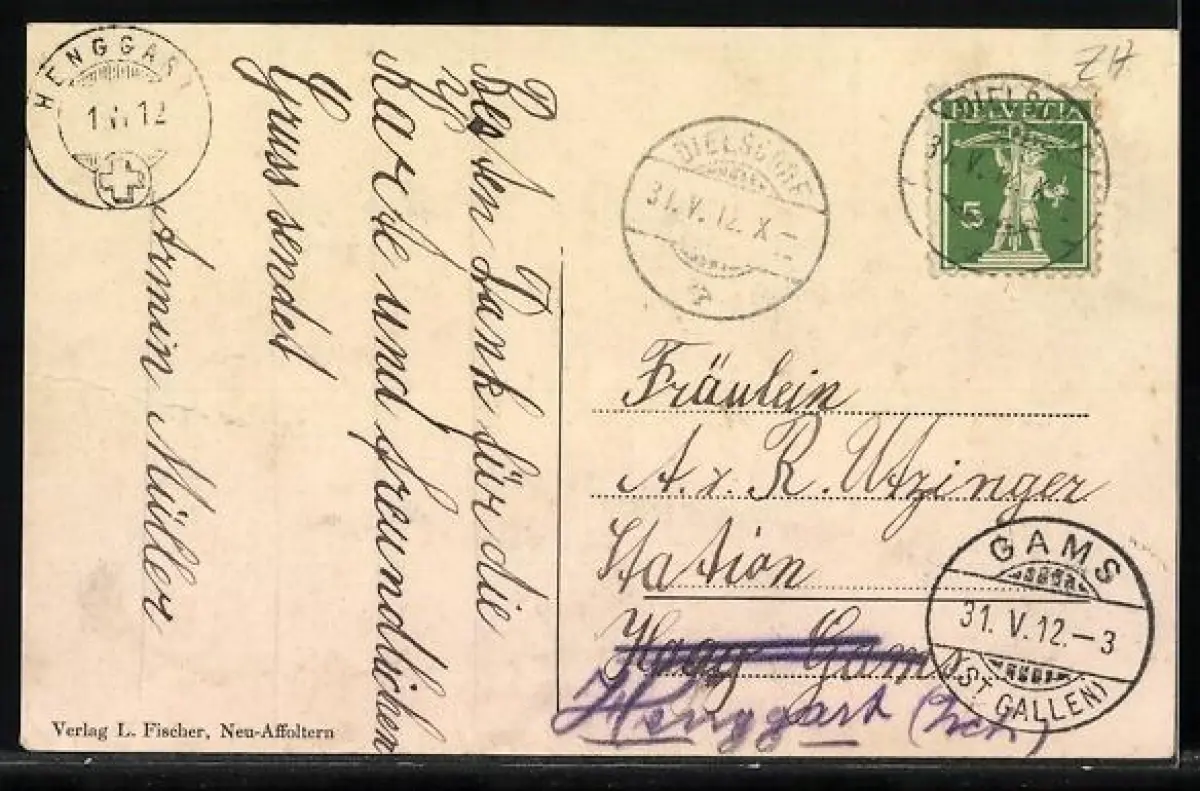 HENGGART
1.VI.12
Besten Dank für die
Karte und freundlichen
Gruss sendet
Armin Müller
Verlag L. Fischer, Neu-Affoltern
ZH
HELVETIA
5
DIELSDORF
31.V.12.X–
DIELSDORF
31.V.
Fräulein
A. x. R. Utzinger
Station
Haag Gams
Henggart (Zch)
GAMS
31.V.12.–3
(ST. GALLEN)